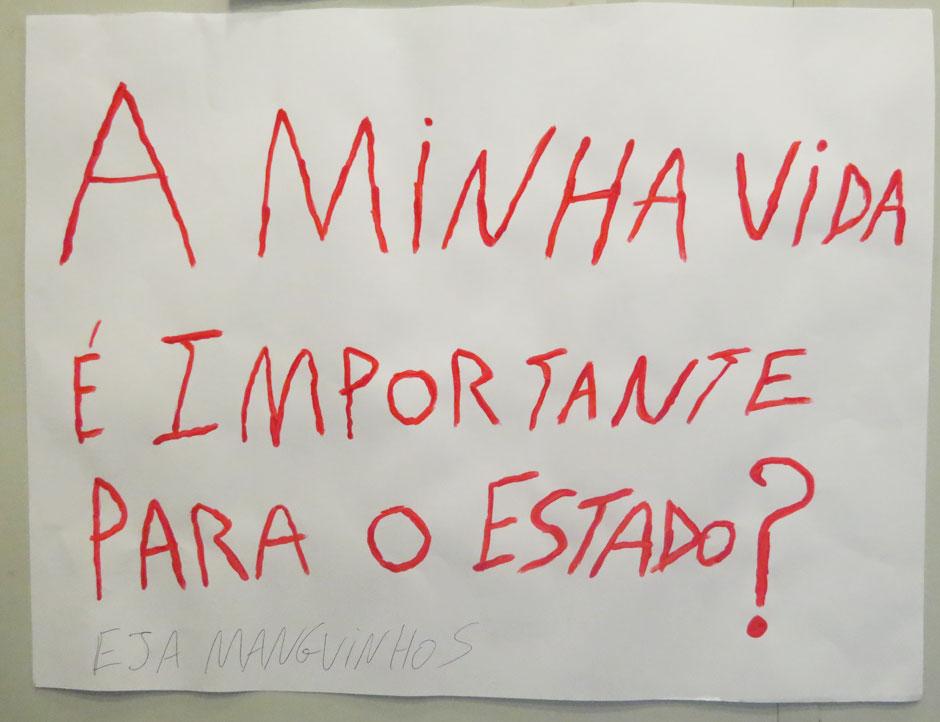 A MINHA VIDA
É IMPORTANTE
PARA O ESTADO?
EJA MANGUINHOS